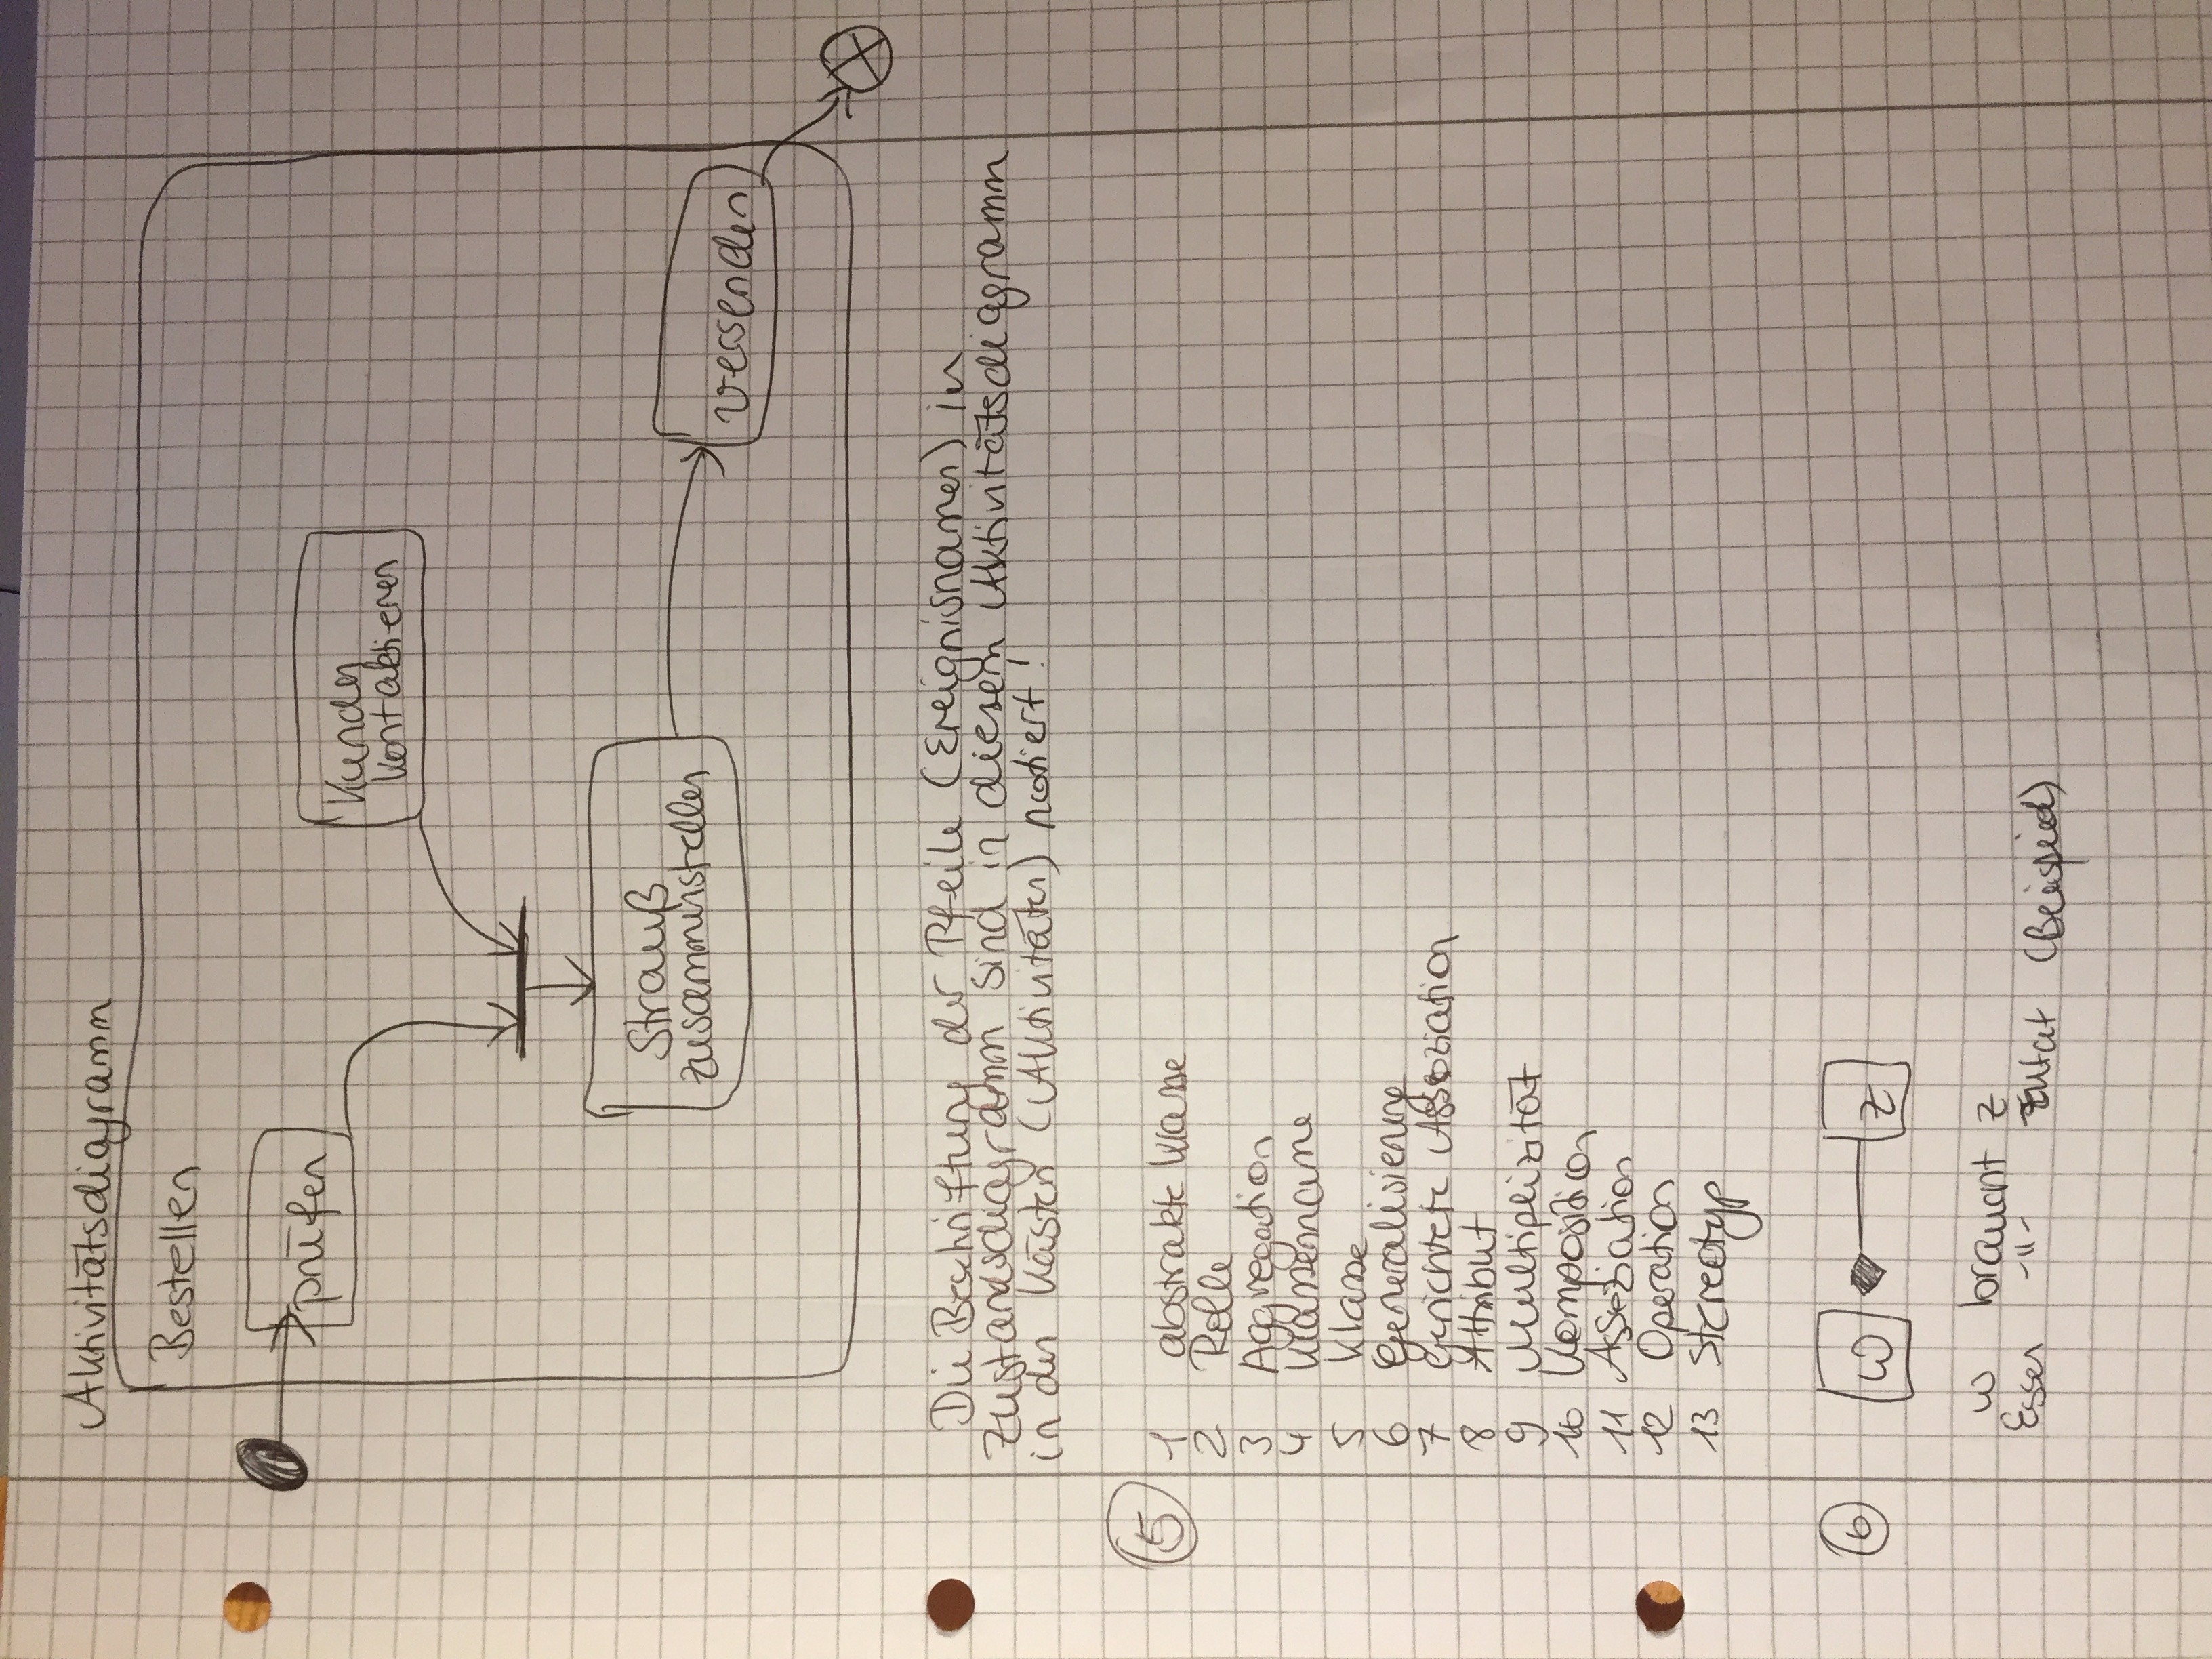 Aktivitätsdiagramm
Bestellen
prüfen
Kunden
kontaktieren
Strauß
zusammenstellen
versenden
Die Beschriftung der Pfeile (Ereignisnamen) in
Zustandsdiagramm sind in diesem Aktivitätsdiagramm
in den Kästen (Aktivitäten) notiert!
5
1 abstrakte Klasse
2 Rolle
3 Aggregation
4 Klassenname
5 Klasse
6 Generalisierung
7 gerichtete Assoziation
8 Attribut
9 Multiplizität
10 Komposition
11 Assoziation
12 Operation
13 Stereotyp
6
W Z
W braucht Z
Essen -"- Zutat (Beispiel)